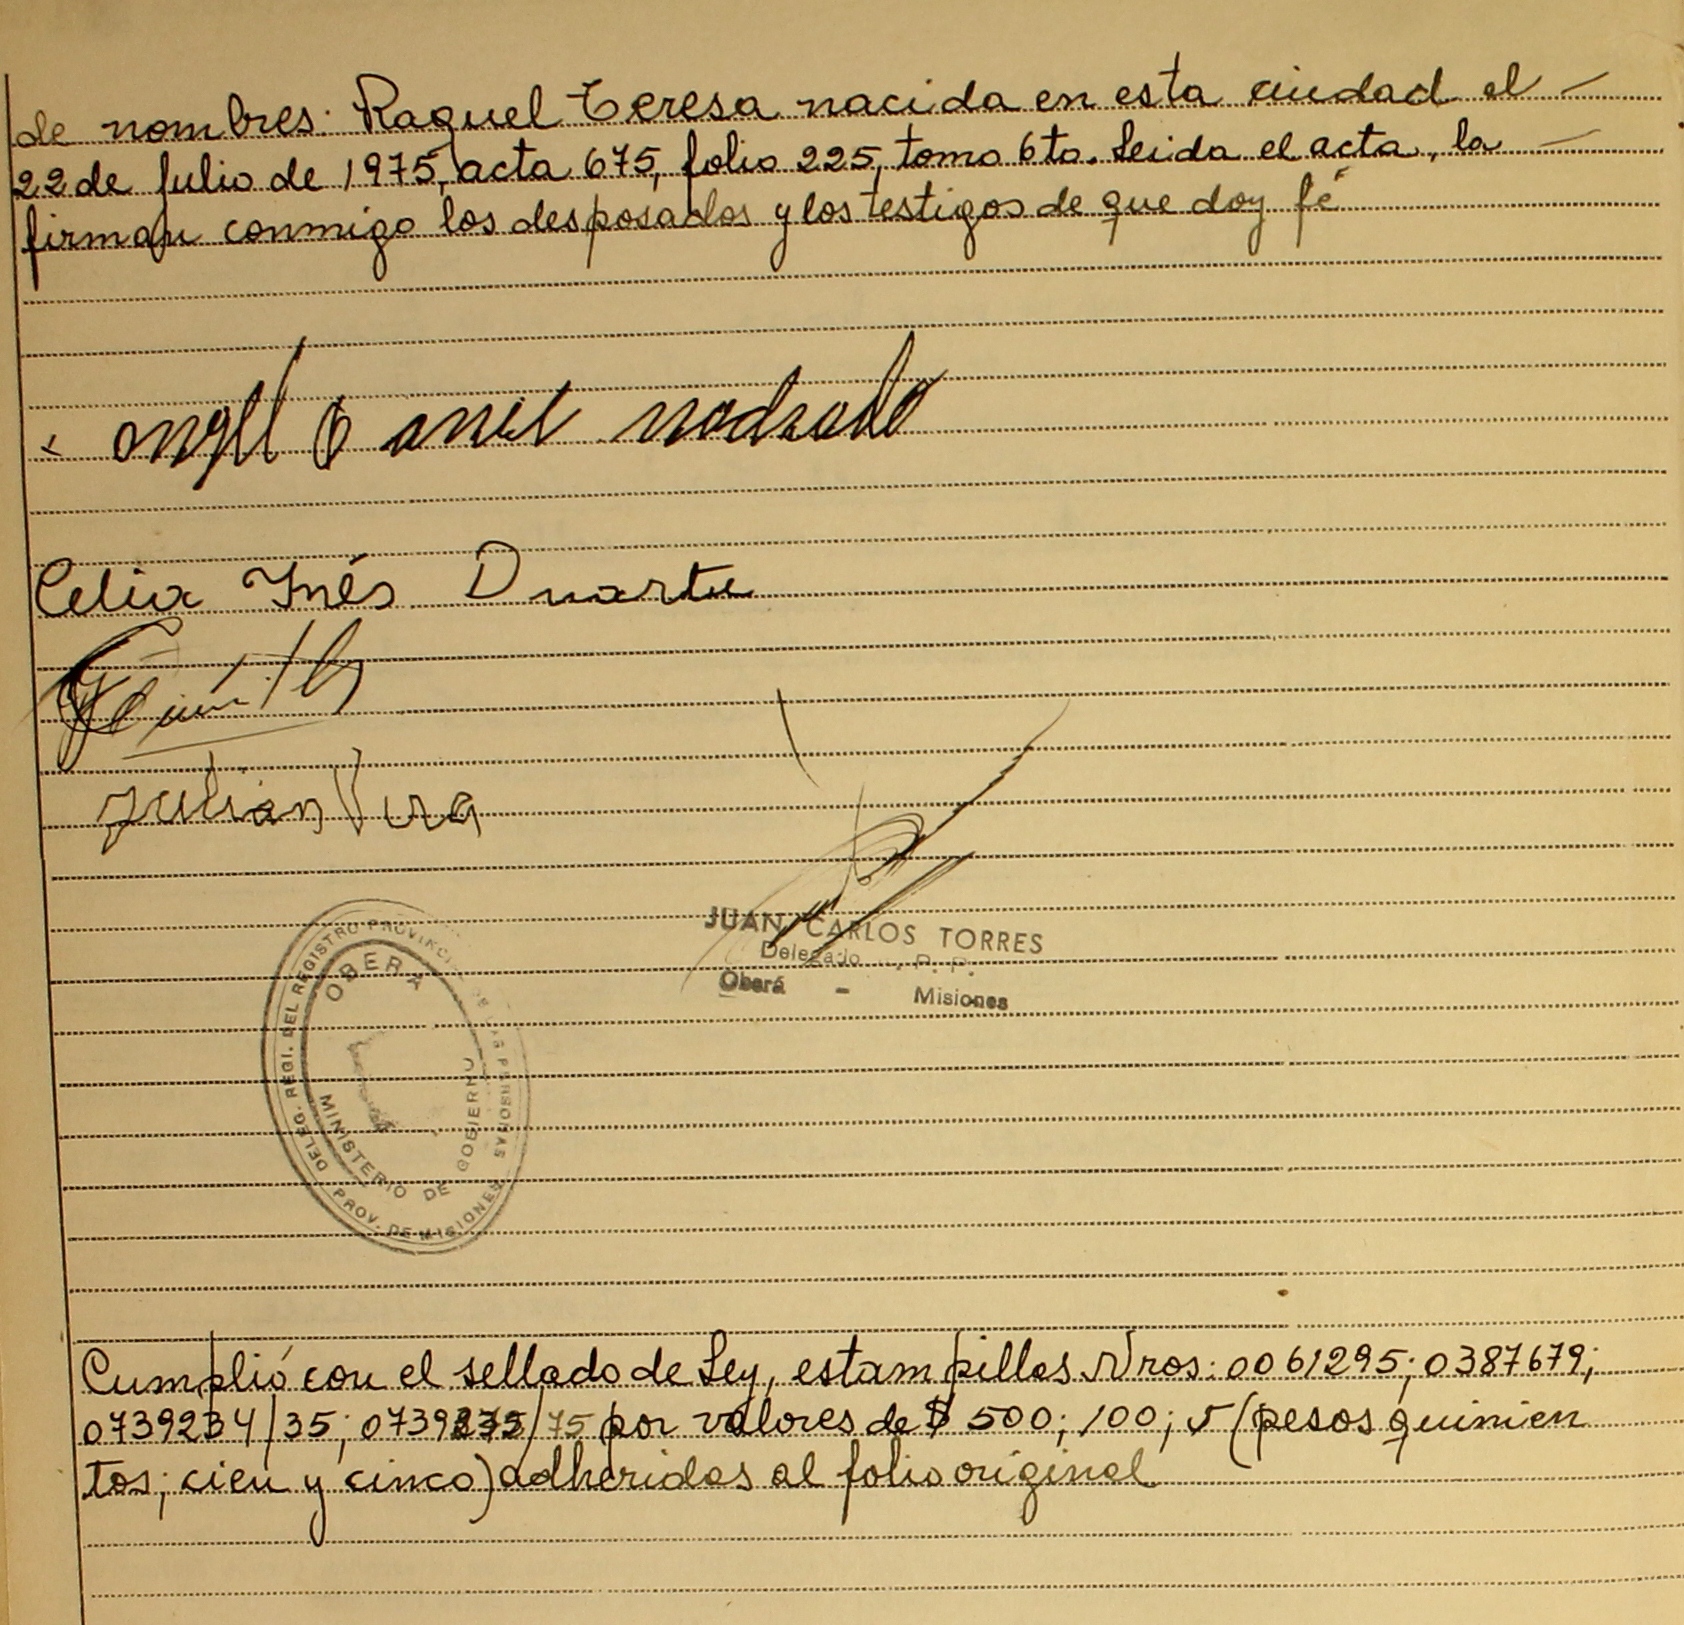 de nombres: Raquel Teresa nacida en esta ciudad el —
22 de Julio de 1975, acta 675, folio 225, tomo 6to. Leida el acta, la —
firman conmigo los desposados y los testigos de que doy fé
Celia Inés Duarte
Julian Vera
JUAN CARLOS TORRES
Delegado R. P. P.
Oberá - Misiones
DELEG. REGI. DEL REGISTRO PROVINCIAL DE LAS PERSONAS
OBERA
MINISTERIO DE GOBIERNO
PROV. DE MISIONES
Cumplió con el sellado de Ley, estampillas Nros: 0061295; 0387679;
0739234/35; /75 por valores de $ 500; 100; 5 (pesos quinien
tos; cien y cinco) adheridas al folio original